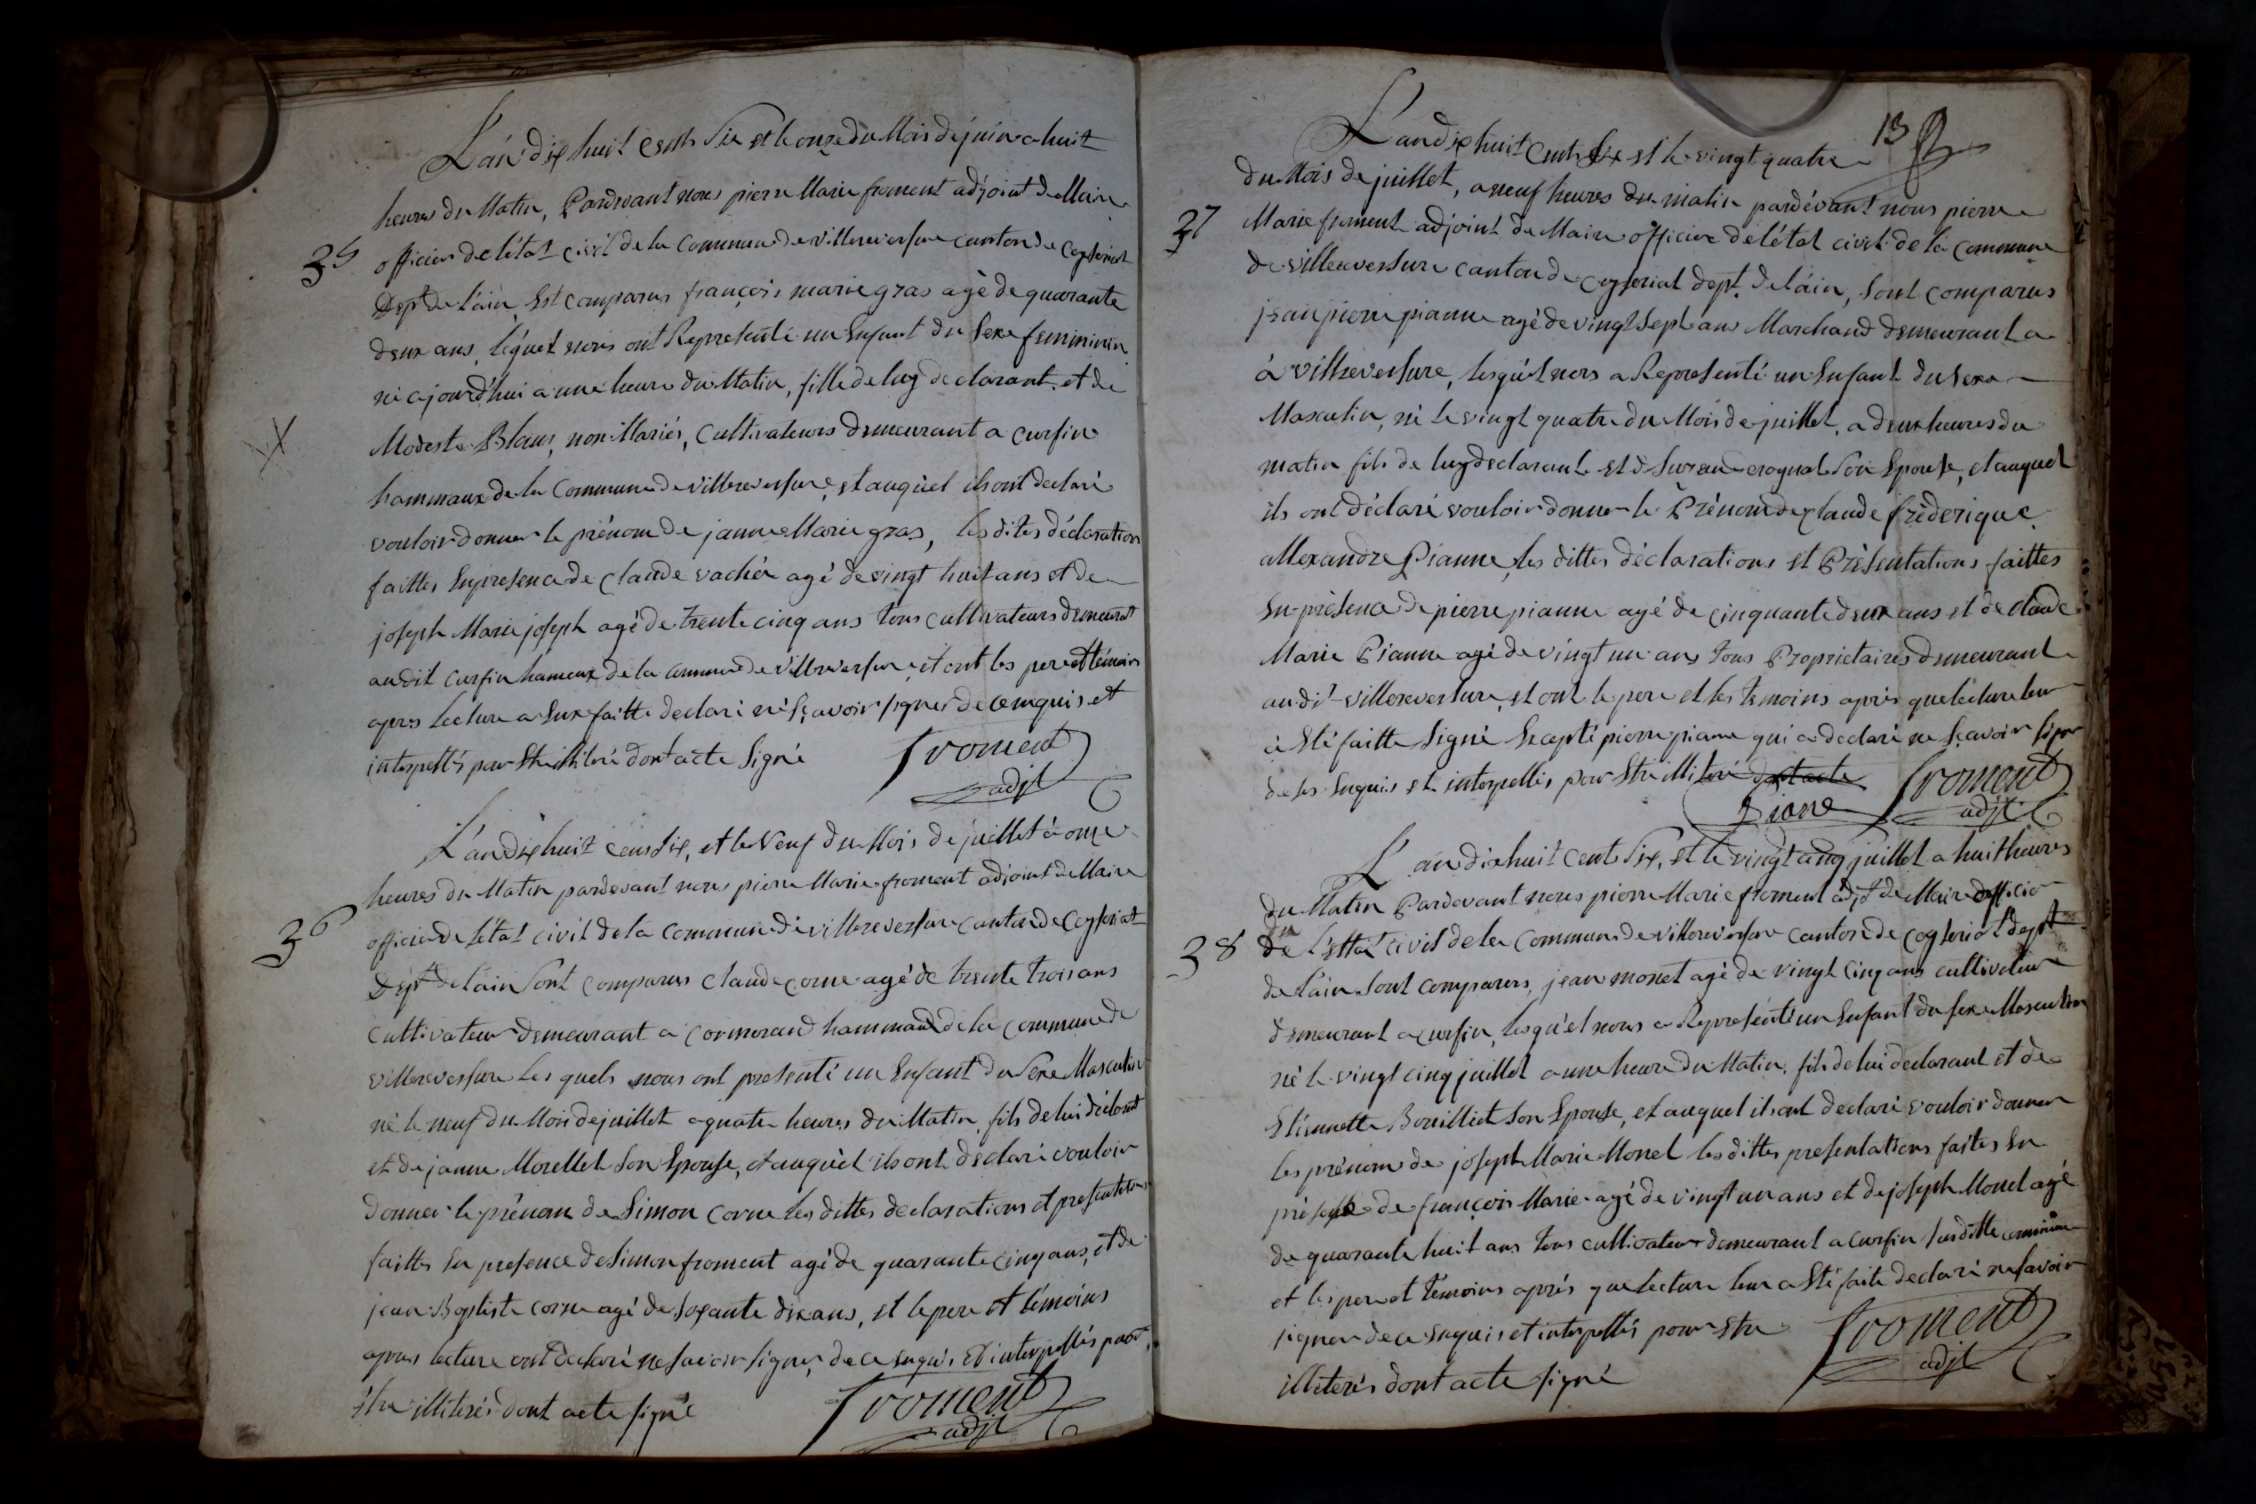 L'an dix huit cents six et le onze du Mois de juin a huit
heures du Matin, Pardevant nous pierre Marie froment adjoint de Maire
35
officier de l'état civil de la Commune de villereversure canton de Ceyseriat
Dept de l'ain, Est comparus françois marie gras agé de quarante
deux ans, léquel nous ont Representé un Enfant du Sexe feminin
né ajourd'hui a une heure du Matin, fille de luy declarant et de
Modeste Blanc, non Mariés, Cultivateurs demeurant a Cursin
hammaux de la Commune de villereversure, et auquel ils ont declaré
vouloir donner le prénom de janne Marie gras, les dites déclaration
faittes En presence de Claude vachér agé de vingt huit ans et de
joseph Marie joseph agé de trente cinq ans tous cultivateurs demeurant
audit Cursin hameux de la commune de villereversure, et ont les pere et témoins
apres lecture a Eux faitte declaré né sçavoir signer de ce enquis et
interpellés pour Etre illiteré dont acte Signé froment
adjt
L'an dix huit cens six, et le Neuf du Mois de juillet à onze
heures du Matin pardevant nous pierre Marie froment adjoint de Maire
36
officier de l'état civil de la commune de villereversure canton de Ceyseriat
Dept de l'ain Sont comparus Claude corne agé de trente trois ans
Cultivateur demeurant a Cormorand hammaux de la commune de
villereversure Les quels nous ont presenté un Enfant du Sexe Masculin
né le neuf du Mois de juillet a quatre heures du Matin, fils de lui déclarant
et de janne Morellet Son Epouse, et auquel ils ont declaré vouloir
donner le prénom de Simon Corne les dittes declarations et presentations
faittes En presence de Simon froment agé de quarante cinq ans, et de
jean Baptiste corne agé de soixante dix ans, et le pere et témoins
apres lecture ont declaré ne savoir signer, de ce enquis et interpellés pour
Etre illiterés dont acte signé froment
adjt
13
L'an dix huit Cents Six et le vingt quatre
du Mois de juillet, a neuf heures du matin pardévant nous pierre
37
Marie froment adjoint du Maire officier de létat civil de la Commune
de villereversure canton de Ceyseriat dept. de láin, sont comparus
jean pierre pianne agé de vingt sept ans Marchand demeurant a
à villereversure, lesquel nous a Representé un Enfant du sexe
Masculin, né le vingt quatre du Mois de juillet, a deux heures du
matin fils de luy declarant et de Suzanne Son Epouse, et auquel
ils ont déclaré vouloir donner le Prénom de Claude fréderique
allexandre Pianne, les dittes déclarations et Présentations faittes
En présence de pierre pianne agé de cinquante deux ans et de Claude
Marie Pianne agé de vingt un ans tous Proprietaires demeurant
audit villereversure, et ont le pere et les temoins aprés que lecture leur
a Eté faitte Signé Excepté pierre pianne qui a declaré ne sçavoir signer
de les Enquis et interpellés pour Etre illiteré dont acte froment
Piane adjt
L'an dix huit Cents Six, et le vingt cinq juillet a huit heures
du Matin Pardevant nous pierre Marie froment adjt de Maire officier
38
de l'ettat civil de la Commune de villereversure canton de Ceyseriat dept
de l'ain Sont Comparus, jean monet agé de vingt cinq ans cultivateur
demeurant a cursin, lesquel nous a Representé un Enfant du sexe Masculin
né le vingt cinq juillet a une heure du Matin, fils de lui declarant et de
Etiennette Bouilliet Son Epouse, et auquel ils ont declaré vouloir donner
les prénom de joseph Marie Monet les dittes presentations faites En
présence de françois Marie agé de vingt un ans et de joseph Monet agé
de quarante huit ans tous cultivateur demeurant a cursin susditte commune
et les pere et temoins aprés que lecture leur a Eté faite declaré ne savoir
signer de ce Enquis et interpellés pour etre froment
illiterés dont acte signé adjt